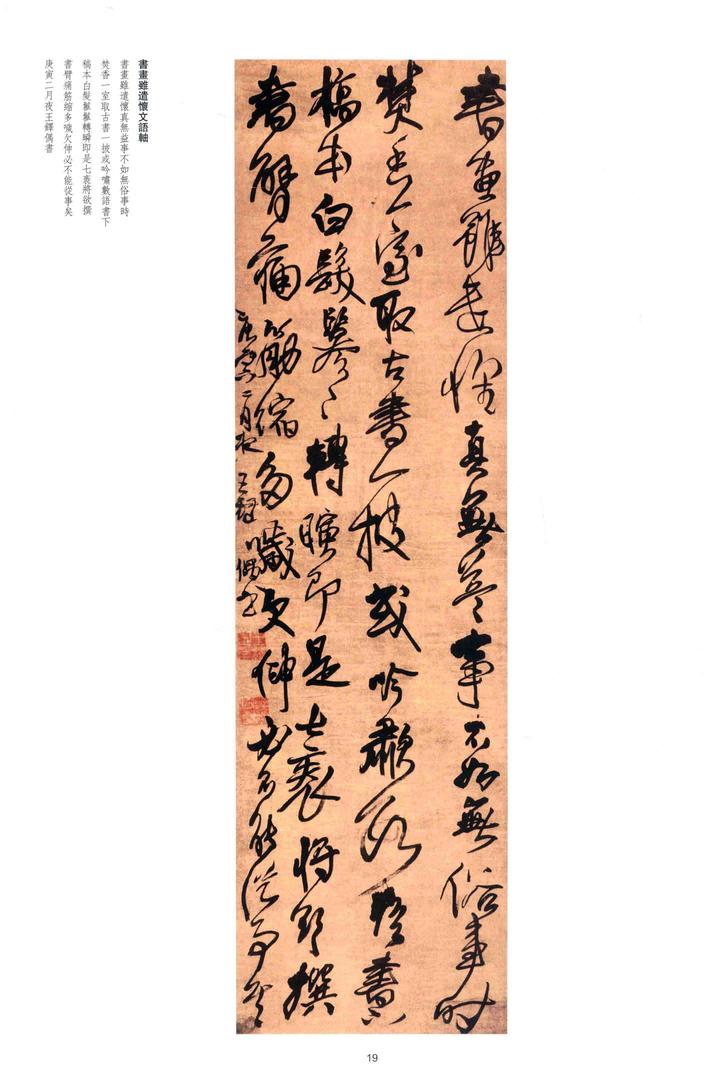 書畫雖遣懷文語軸
書畫雖遣懷真無益事不如無俗事時
焚香一室取古書一披或吟嘯數語書下
稿本白髮鬖鬖轉瞬即是七袠將欲撰
書臂痛筋縮多嚱欠伸必不能從事矣
庚寅二月夜王鐸偶書
書畫雖遣懷真無益事不如無俗事時
焚香一室取古書一披或吟嘯數語書下
稿本白髮鬖〻轉瞬即是七袠將欲撰
書臂痛筋縮多嚱欠伸必不能從事矣
庚寅二月夜王鐸偶書
19